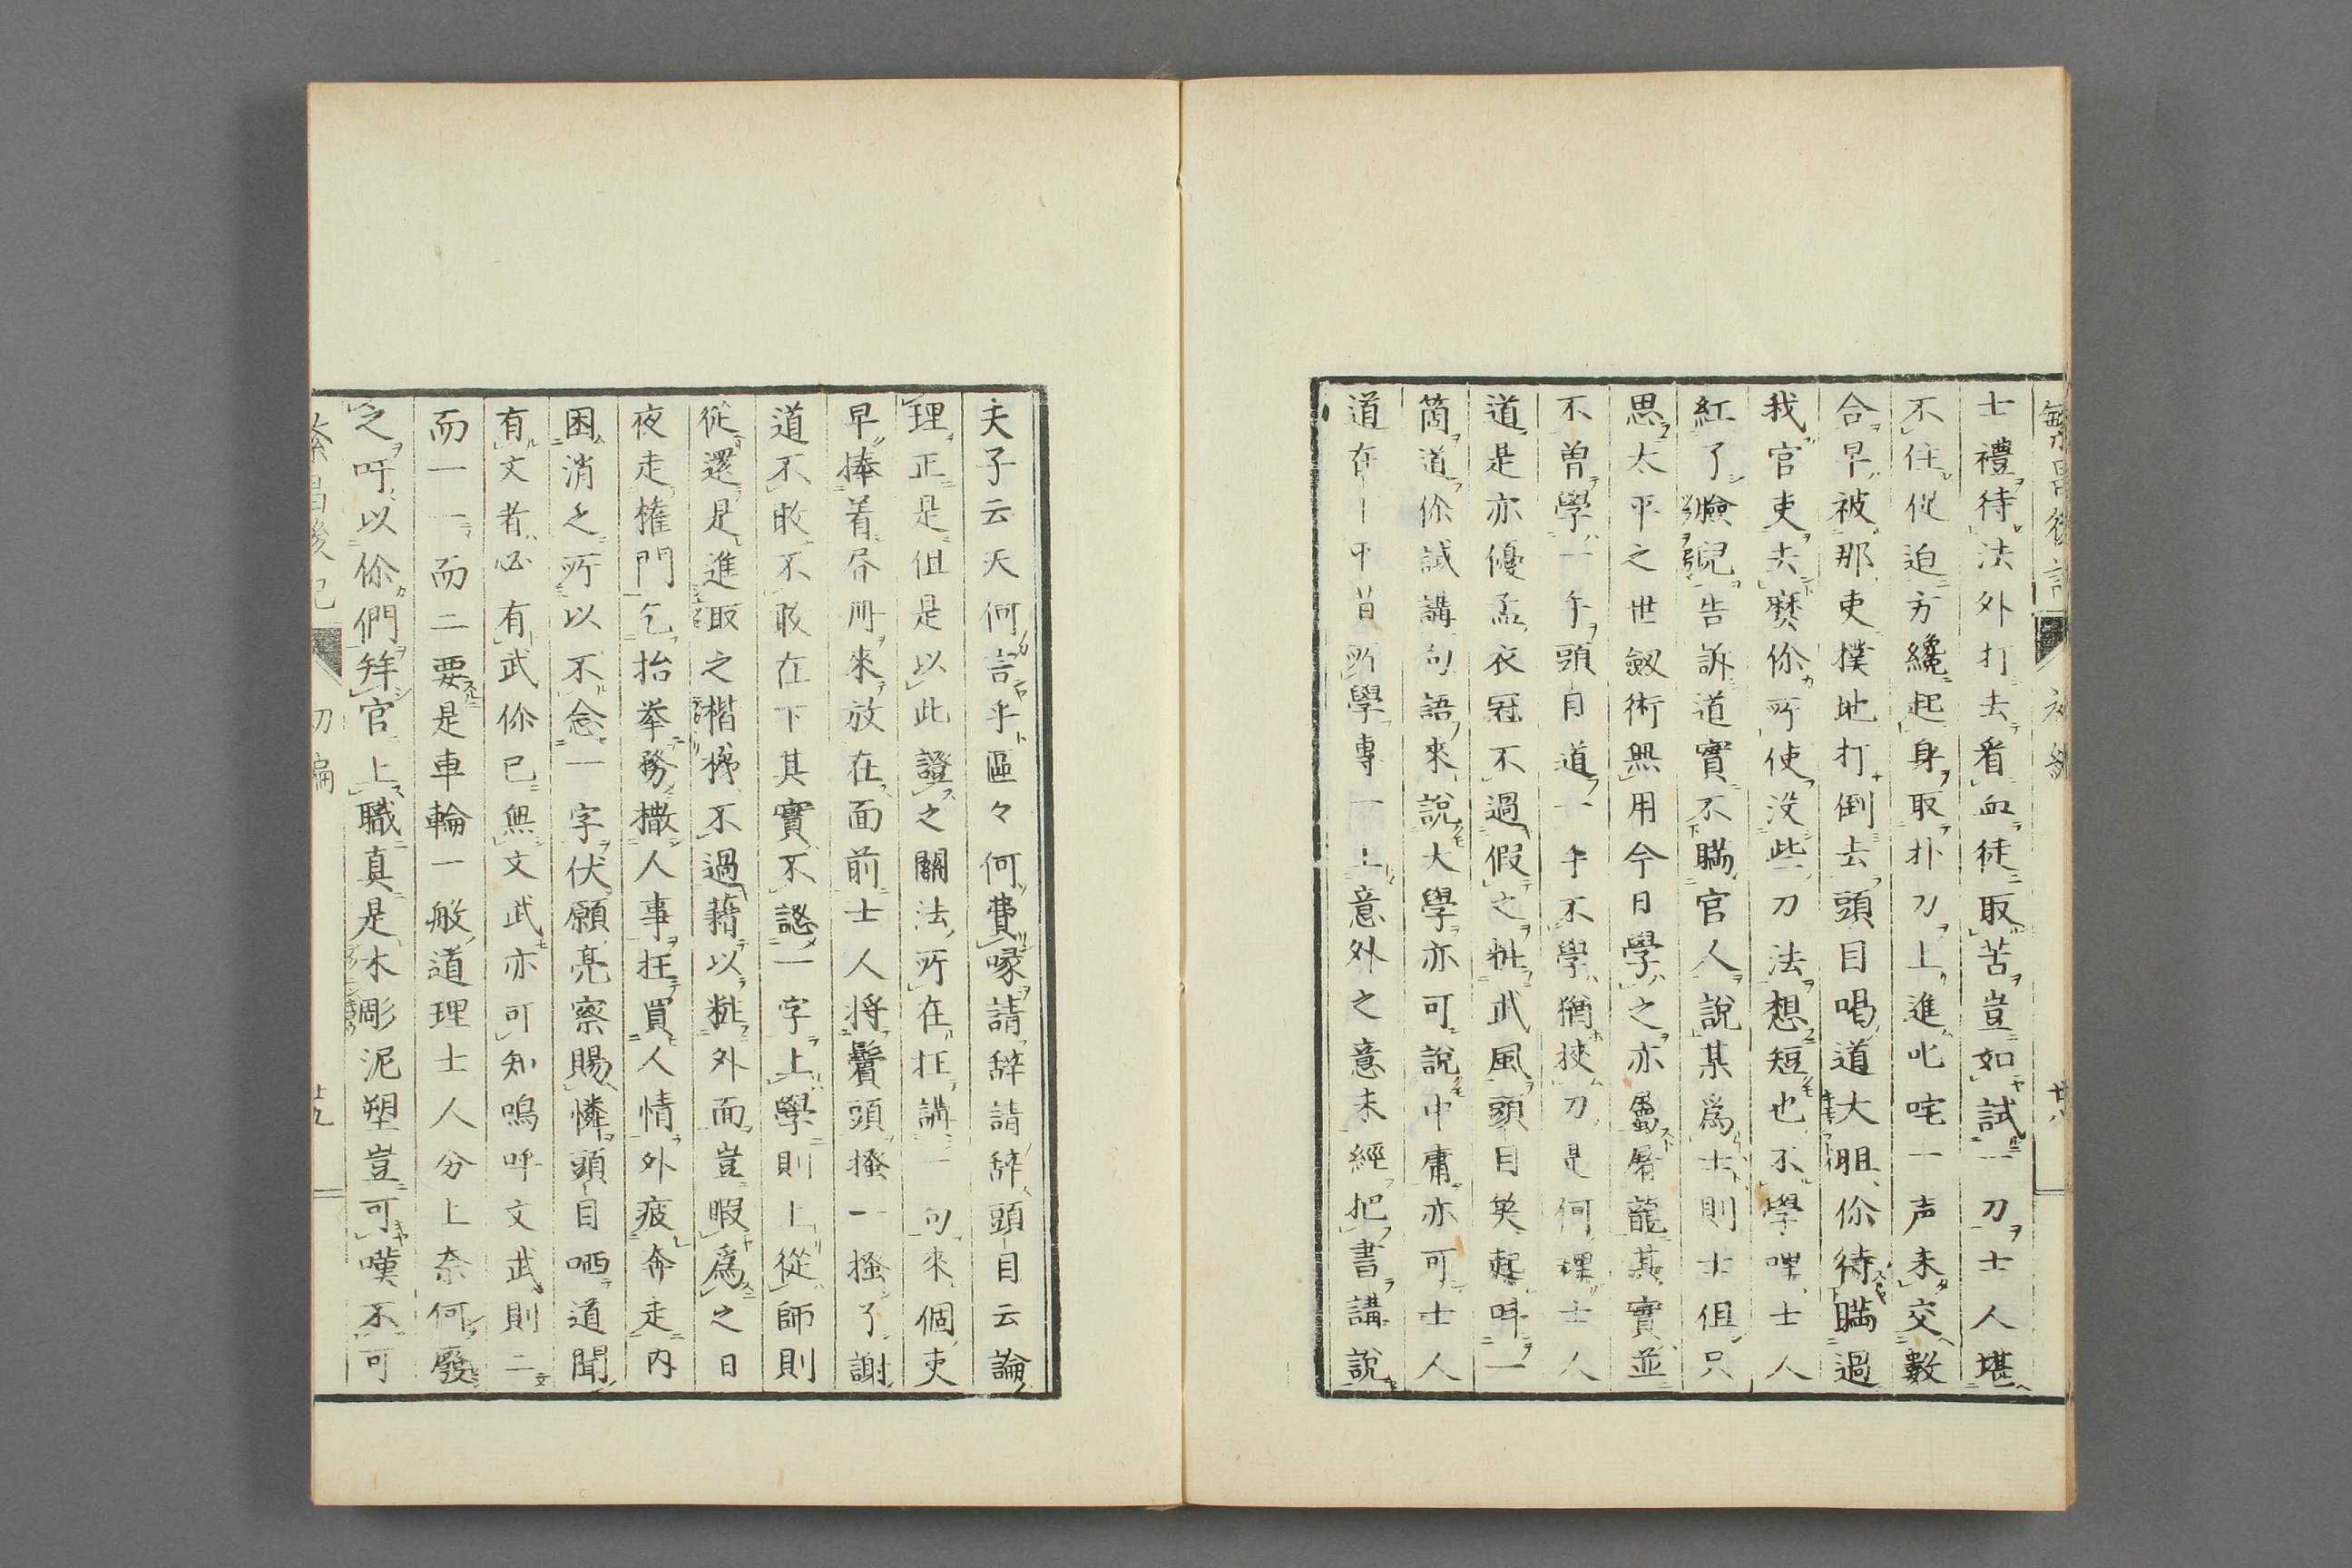 士禮待法外打去看血徒取苦豈如試一刀士人堪
不住從迫方纔起身取朴刀上進叱咤一声未交數
合早被那吏撲地打倒去頭目喝道大胆你待瞞過
我官吏去麼你所使没些刀法想短也不學哩士人
紅了臉兒告訴道實不瞞官人說某爲士則士但只
思太平之世劔術無用今日學之亦屬屠龍其實並
不曽學一手頭目道一手不學猶挾刀是何理士人
道是亦優孟衣冠不過假之粧武風頭目笑起呌一
箇道你試講句語來說大學亦可說中庸亦可士人
道在下平昔所學專一上意外之意未經把書講說
夫子云天何言乎區々何費喙請辞請辞頭目云論
理正是但是以此證之關法所在抂講一句來個吏
早捧着唇冊來放在面前士人將鬢頭搔一搔了謝
道不敢不敢在下其實不認一字上學則上從師則
從還是進取之楷梯不過藉以粧外面豈暇爲之日
夜走權門乞抬挙務撒人事抂買人情外疲奔走内
困消乏所以不念一字伏願亮察賜憐頭目哂道聞
有文者必有武你已無文武亦可知嗚呼文武則二
而一一而二要是車輪一般道理士人分上奈何廢
之吁以你們拜官上職真是木彫泥塑豈可嘆不可
繁昌後記 初編 廿八
繁昌後記 初編 廿九